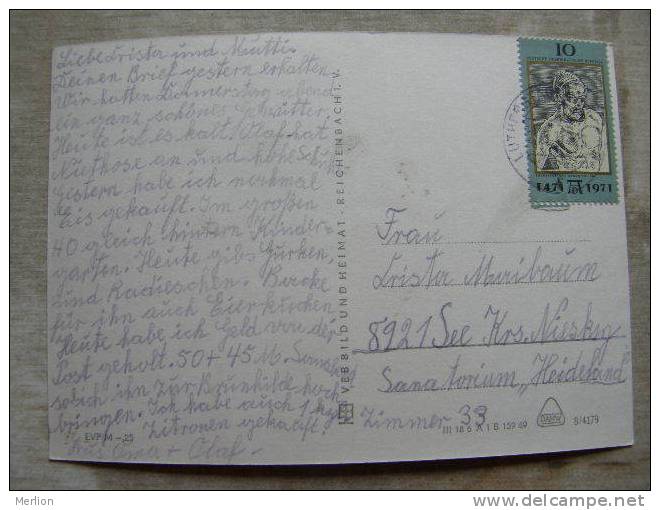 Liebe Crista und Mutti.
Deinen Brief gestern erhalten.
Wir hatten Donnerstag abend
ein ganz schönes Gewitter.
Heute ist es kalt. Olaf hat
Niethose an und hohe Schuh
Gestern habe ich nochmal
Eis gekauft. Im großen
40 gleich hintern Kinder-
garten. Heute gibs Gurken,
und Radieschen. Backe
für ihn auch Eierkuchen
Heute habe ich Geld von der
Post geholt. 50 + 45 M.
soll ich ihn zur Brunhilde hoch
bringen. Ich habe auch 1 kg
Zitronen gekauft!
Oma + Olaf -
EVP M -,25
VEB BILD UND HEIMAT · REICHENBACH I. V.
10
1471 1971
Frau
Crista Maribaum
8921 See Krs. Niesky
Sanatorium „Heideland"
Zimmer 33
III 18 6 A 1 B 159 69
8/4179
Merlion
www.delcampe.net